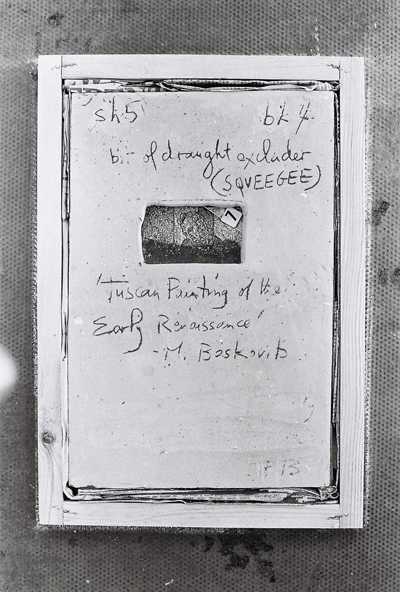 sh5 bk 4
bit of draught excluder
(SQVEEGEE)
7
'Tuscan Painting of the
Early Renaissance'
- M. Boskovits